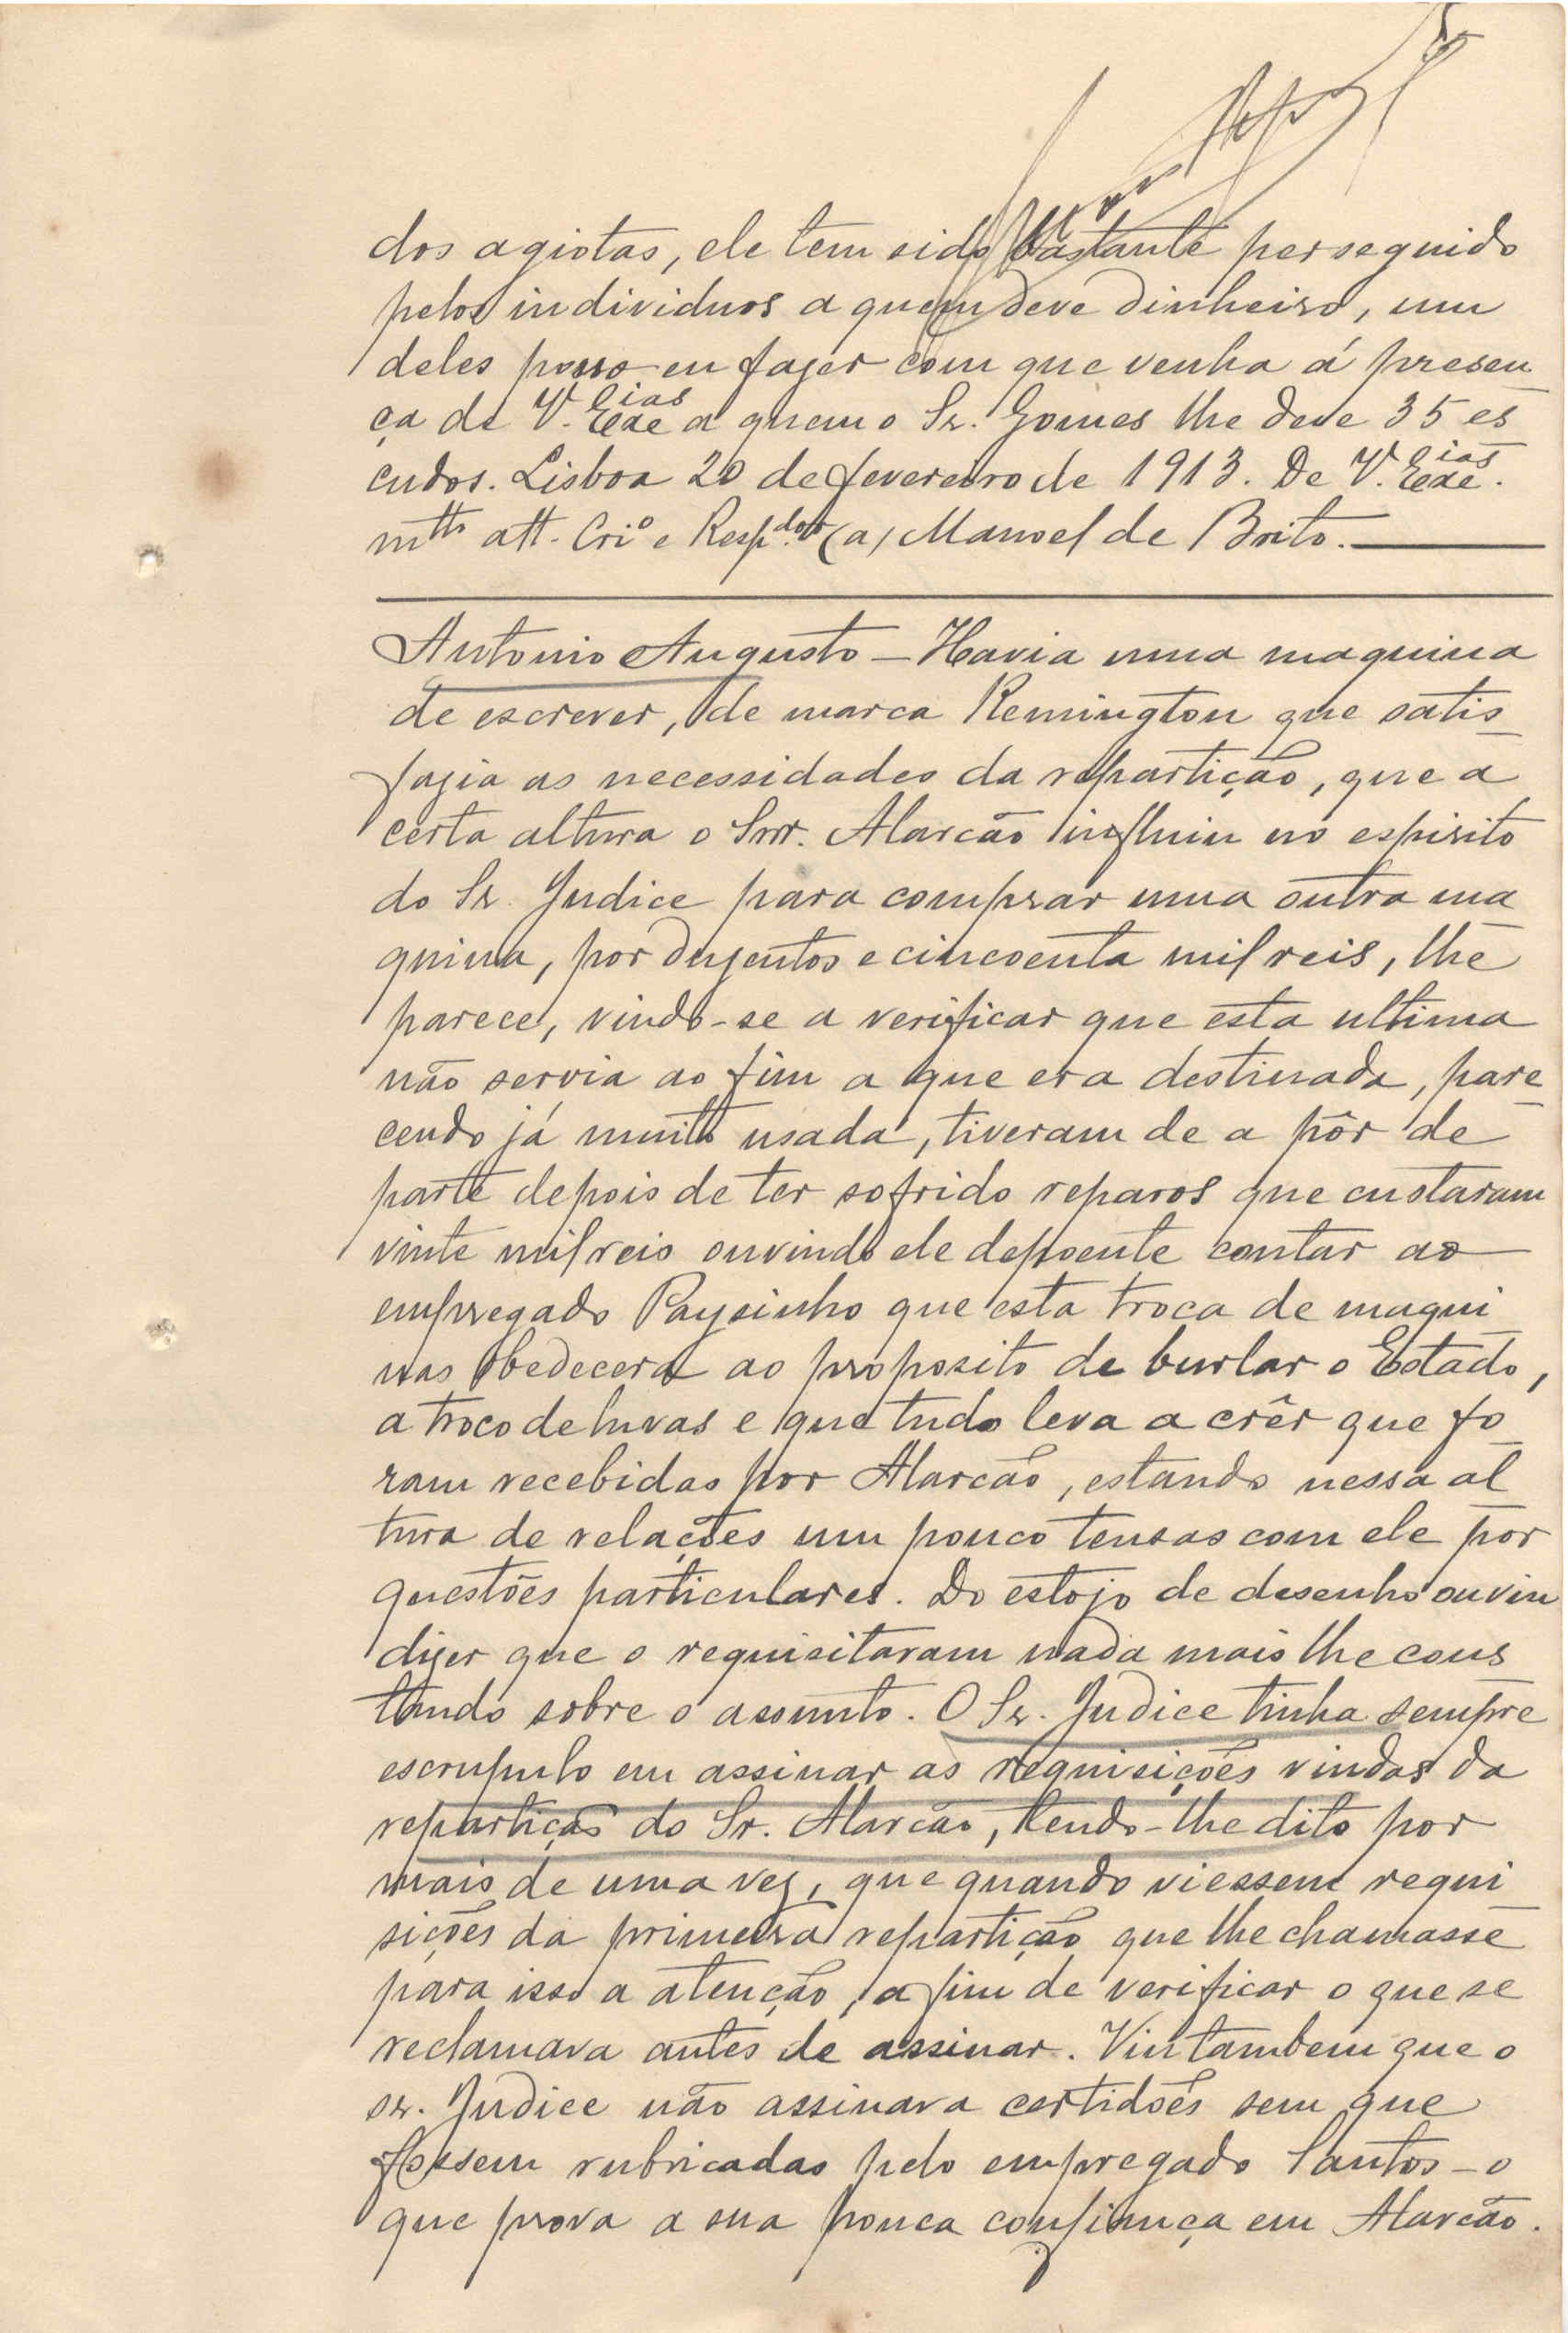 dos agiotas, ele tem sido bastante perseguido
pelos individuos a quem deve dinheiro, um
deles posso eu fazer com que venha á presen
ça de V. Excias a quem o Sr. Gomes lhe deve 35 es
cudos. Lisboa 20 de fevereiro de 1913. De V. Excias.
mtto att. Crio e Respdor (a) Manoel de Brito.
Antonio Augusto – Havia uma maquina
de escrever, de marca Remington que satis-
fazia as necessidades da repartição, que a
certa altura o Snr. Alarcão influiu no espirito
do Sr. Judice para comprar uma outra ma
quina, por duzentos e cincoenta mil reis, lhe
parece, vindo-se a verificar que esta ultima
não servia ao fim a que era destinada, pare-
cendo já muito usada, tiveram de a pôr de
parte depois de ter sofrido reparos que custaram
vinte mil reis ouvindo ele depoente contar ao
empregado Paysinho que esta troca de maqui
nas obedecera ao proposito de burlar o Estado,
a troco de luvas e que tudo leva a crêr que fo-
ram recebidas por Alarcão, estando nessa al
tura de relações um pouco tensas com ele por
questões particulares. Do estojo de desenho ouviu
dizer que o requisitaram nada mais lhe cons
tando sobre o assunto. O Sr. Judice tinha sempre
escrupulo em assinar as requisições vindas da
repartição do Sr. Alarcão, tendo-lhe dito por
mais de uma vez, que quando viessem requi
sições da primeira repartição que lhe chamasse
para isso a atenção, a fim de verificar o que se
reclamava antes de assinar. Viu tambem que o
sr. Judice não assinava certidões sem que
fossem rubricadas pelo empregado Santos – o
que prova a sua pouca confiança em Alarcão.